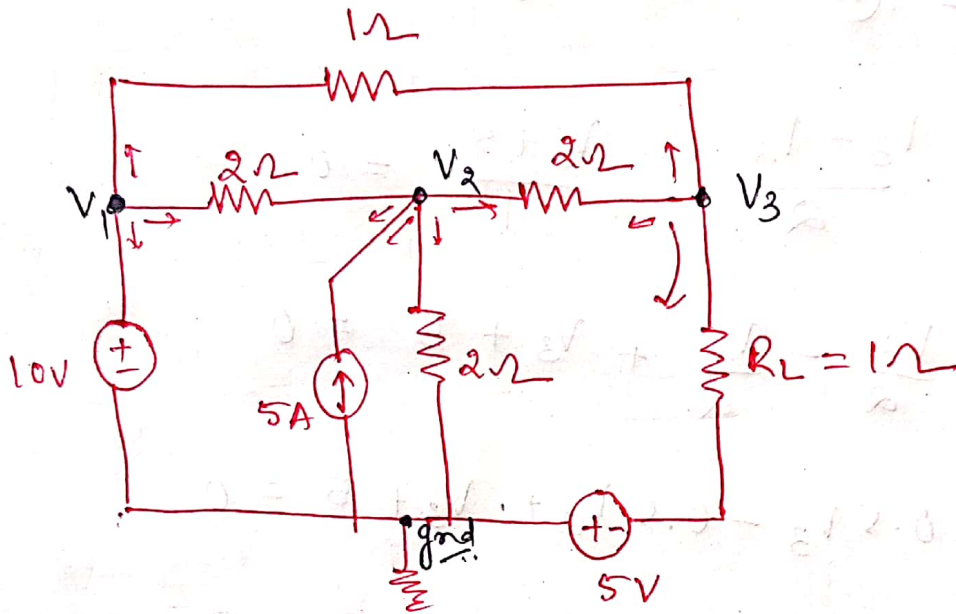 1Ω
2Ω
V2
2Ω
V1
V3
10V
+
-
5A
2Ω
RL = 1Ω
gnd
+-
5V